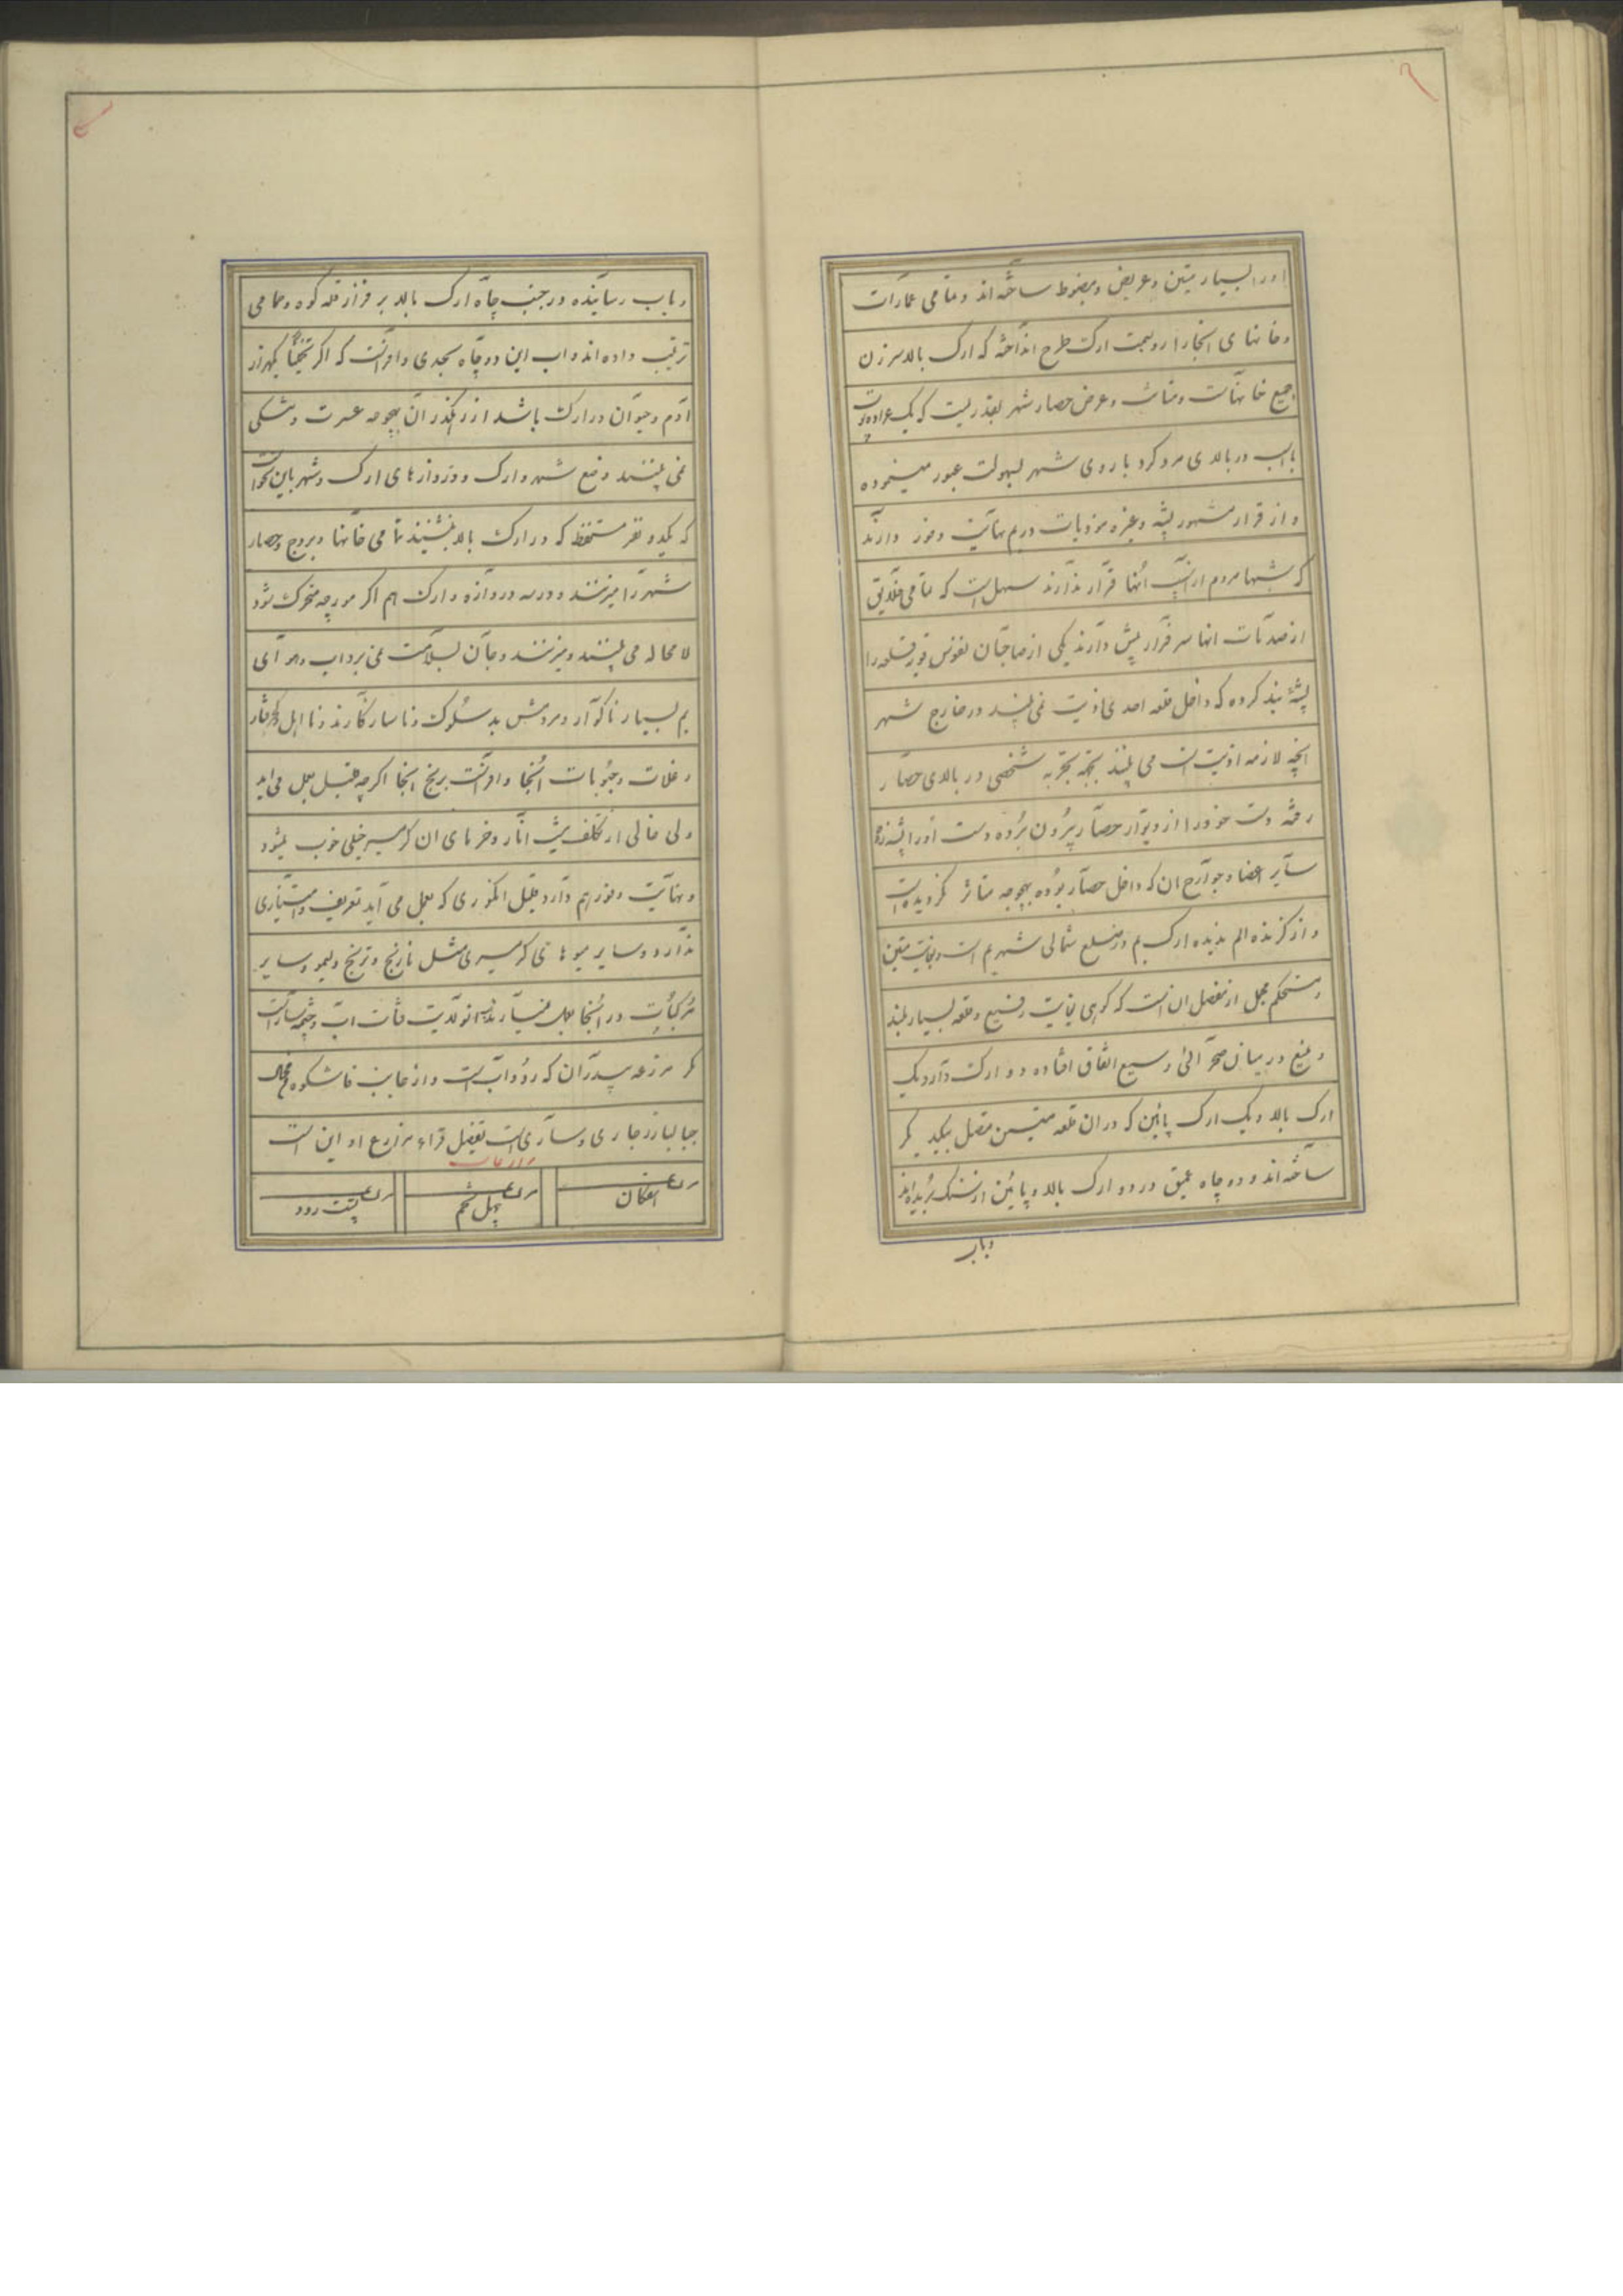 اورا بسیار متین و عریض و مضبوط ساخته اند و تمامی عمارات
و خانهای انجارا رو بسمت ارک طرح انداخته که ارک بالا سرزن
جمیع خانهاست و متانت و عرض حصار شهر بقدریست که یک عراده توپ
با اسب در بالای مرو کرد باروی شهر بسهولت عبور مینموده
و از قرار مشهور پشه و غیره موذیات در بم نهایت وفور دارند
که شبها مردم از نیش آنها قرار ندارند سهل است که تمامی خلایق
از صدمات انها سر فرار پیش دارند یکی از صاحبان نفوس قویه قلعه را
پشه بند کرده که داخل قلعه احدی اذیت نمی بیند در خارج شهر
انچه لازمه اذیت است می بینند بجهة تجربه شخصی در بالای حصار
رفته دست خود را از دیوار حصار بیرون برده دست اورا پشه زده
سایر اعضا و جوارح ان که داخل حصار بوده بهیچوجه متاثر نگردیده است
و از گزنده الم ندیده ارک بم در ضلع شمالی شهر بم است و بغایت متین
و مستحکم مجمل از تفصیل ان انست که کوهی بغایت رفیع و قلعه بسیار بلند
و منیع در میان صحرائی وسیع اتفاق افتاده دو ارک دارد یک
ارک بالا و یک ارک پائین که در ان قلعه متین متصل بیکدیگر
ساخته اند و دو چاه عمیق در دو ارک بالا و پائین از سنگ بریده اند
وباب
و باب رسانیده در جنب چاه ارک بالا بر فراز قله کوه و حمامی
ترتیب داده اند و اب این دو چاه بحدی وافر است که اگر تخمیناً یکهزار
آدم و حیوان در ارک باشد از رهگذر آن بهیچوجه عسرت و تشنگی
نمی بینند وضع شهر و ارک و دروازهای ارک و شهر باین نحو است
که یکدو نفر مستحفظ که در ارک بالا بنشینند تمامی خانها و بروج و حصار
شهر را میزنند و در سه دروازه و ارک هم اگر مورچه متحرک شود
لا محاله می بینند و میزنند و جان بسلامت نمی برد اب و هوآی
بم بسیار ناگوار و مردمش بد سلوک و ناسازگارند و نا اهل و کج رفتار
و غلات و حبوبات آنجا وافر است برنج انجا اگرچه قلیل بعمل می اید
ولی خالی از تکلف نیست انار و خرمای ان گرمسیر خیلی خوب میشود
و نهایت وفور هم دارد قلیل انگوری که بعمل می آید تعریف و امتیازی
ندارد و سایر میوهای گرمسیری مثل نارنج و ترنج و لیمو و سایر
مرکبات در آنجا بعمل قنات اب و چشمه سار است
مگر مزرعه سیدران که رود آب است و از جانب شکوه
جبالبارز جاری و ساری است تفصیل قراء و مزارع او این است
مزرعه
افکان
مزرعه
چهل تخم
مزرعه
پشت رود